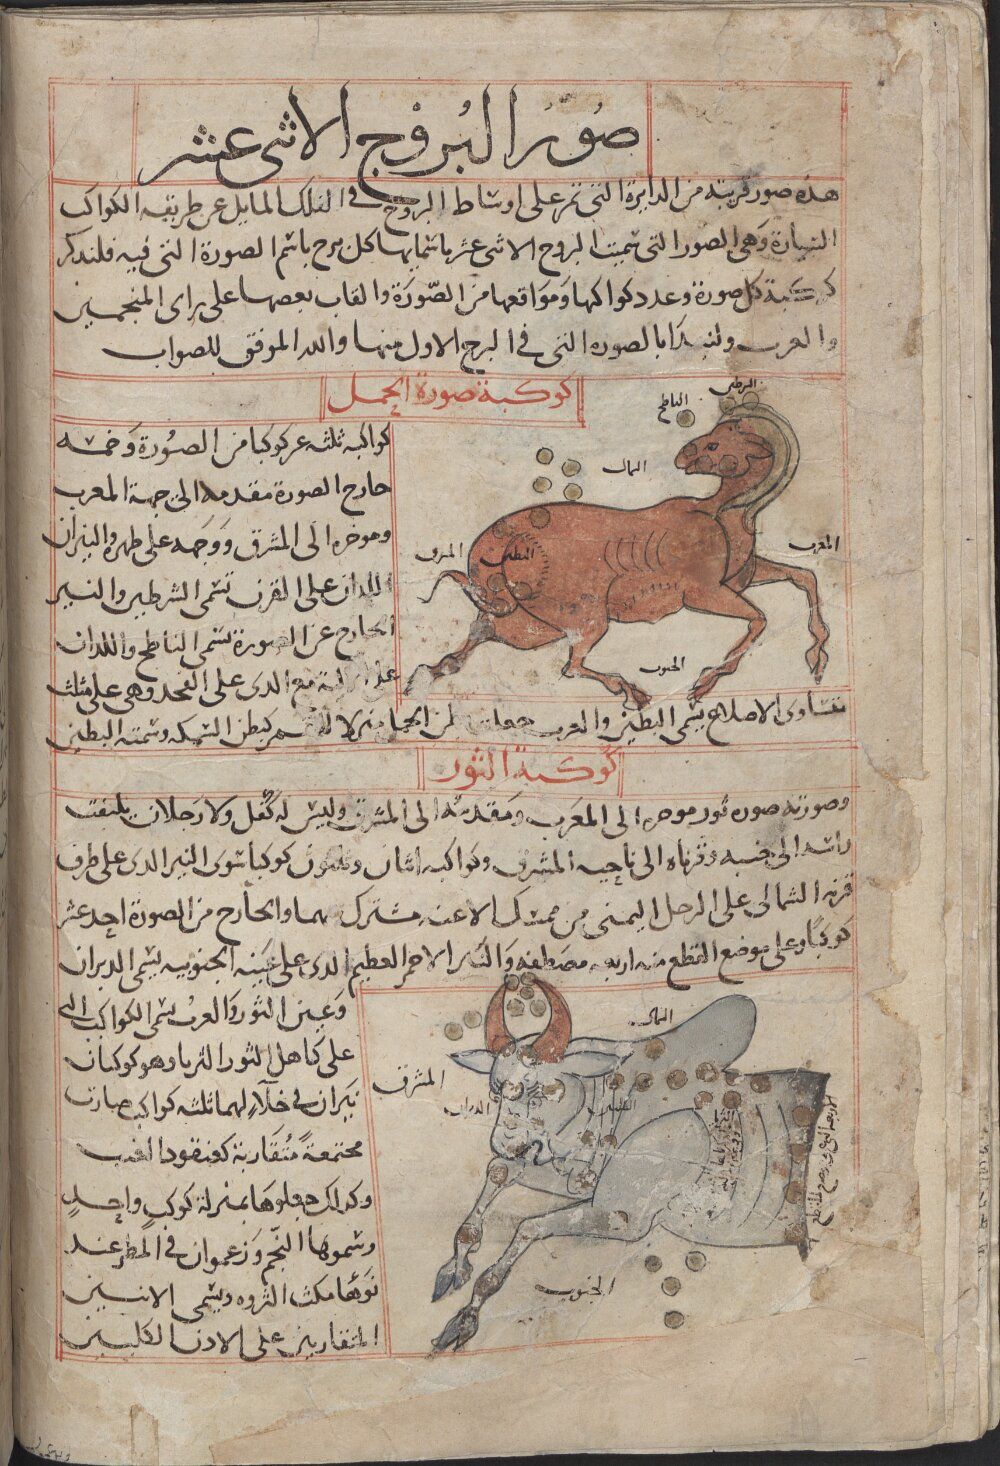 صور البروج الاثنى عشر
هذه صور قريبة من الدايرة التى تمر على اوساط البروج فى الفلك المايل عن طريقه الكواكب
السيارة وهى الصور التى سميت البروج الاثنى عشر باسمايها كل برج باسم الصورة التى فيه فلنذكر
كوكبة كل صورة وعدد كواكبها ومواقعها من الصورة والقاب بعضها على راى المنجمين
والعرب ولنبدا بالصورة التى فى البرج الاول منها والله الموفق للصواب
كوكبة صورة الحمل
كواكبه ثلثه عشر كوكبا من الصورة وخمسه
خارج الصورة مقدمه الى جهة المغرب
وموخره الى المشرق ووجهه على ظهره والنيران
اللذان على القرن تسمى الشرطين والنير
الخارج عن الصورة يسمى الناطح واللذان
على الالية مع الذى على الفخد وهى على مثلث
متساوى الاضلاع يسمى البطين والعرب جعلت بطن الحمل منزلا للقمر كبطن السمكه وسمته البطين
الشرطين
الناطح
الشمال
المغرب
المشرق
البطين
الجنوب
كوكبة الثور
وصورته صورة ثور موخره الى المغرب ومقدمه الى المشرق وليس له كفل ولا رجلان يلتفت
راسه الى جنبه وقرناه الى ناحيه المشرق وكواكبه اثنان وثلثون كوكبا سوى النير الذى على طرف
قرنه الشمالى على الرجل اليمنى من ممسك الاعنه مشترك بينهما والخارج من الصورة احد عشر
كوكبا وعلى موضع القطع منه اربعه مصطفه والنير الاحمر العظيم الذى على عينه الجنوبيه يسمى الدبران
وعين الثور والعرب يسمى الكواكب التى
على كاهل الثور الثريا وهو كوكبان
نيران فى خلالهما ثلثه كواكب صارت
مجتمعة متقاربة كعنقود العنب
وكذلك جعلوها بمنزلة كوكب واحد
وسموها النجم وزعموا ان فى المطر عند
نوئها مكث الثروه ويسمى الاثنين
المتقاربين على الاذن الكلبين
الشمال
المشرق
الدبران
الجنوب